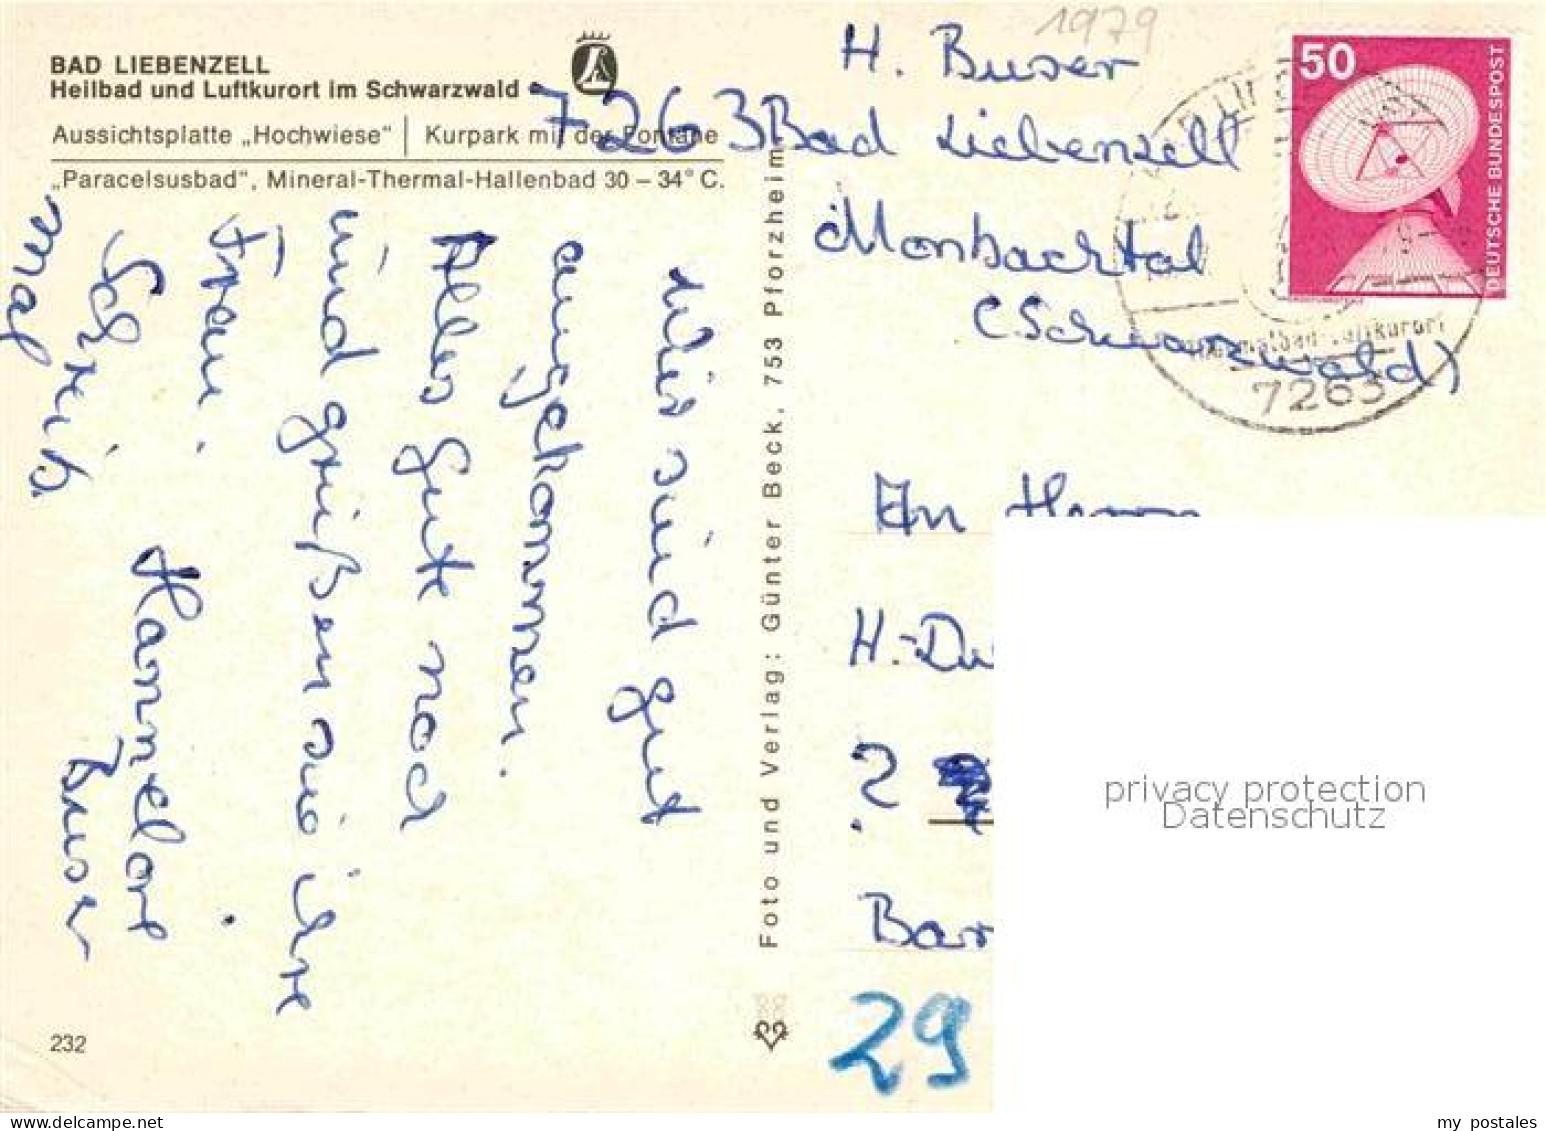 1979
BAD LIEBENZELL
Heilbad und Luftkurort im Schwarzwald
Aussichtsplatte „Hochwiese“ | Kurpark mit der Fontäne
„Paracelsusbad“, Mineral-Thermal-Hallenbad 30 – 34° C.
H. Buser
7263 Bad Liebenzell
Monbachtal
(Schwarzwald)
50
DEUTSCHE BUNDESPOST
7263
Wir sind gut
angekommen.
Alles gut noch
und grüßen sie ihre
Frau.
Schreib
mal
Hannelore
Buser
Foto und Verlag: Günter Beck, 753 Pforzheim
An Herrn
H.-Du
2
Bar
29
232
privacy protection
Datenschutz
my postales